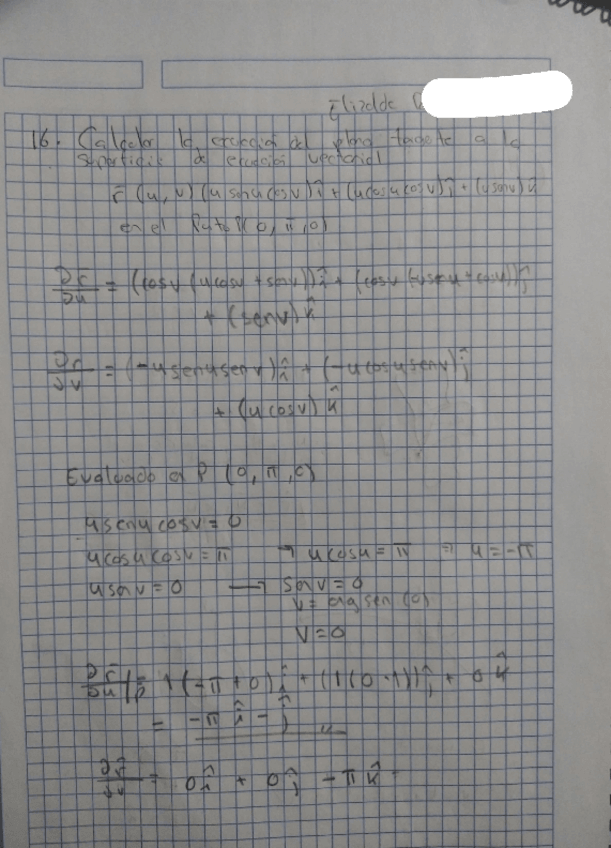 Elizalde
16. Calcular la ecuación del plano tangente a la
superficie de ecuación vectorial
r̄ (u, v) (u senu cosv) î + (u cosu cosv) ĵ + (u senv) k̂
en el Punto P(0, π, 0)
∂r̄/∂u = (cosv (u cosu + senu)) î + (cosv (-u senu + cosu)) ĵ
+ (senv) k̂
∂r̄/∂v = (-u senu senv) î + (-u cosu senv) ĵ
+ (u cosv) k̂
Evaluado a P (0, π, 0)
u senu cosv = 0
u cosu cosv = π → u cosu = π ⇒ u = -π
u senv = 0 → senv = 0
v = ag sen (0)
V = 0
∂r̄/∂u|p = 1 (-π + 0) î + (1 (0 - 1)) ĵ + 0 k̂
= -π î - ĵ
∂r̄/∂v = 0 î + 0 ĵ - π k̂